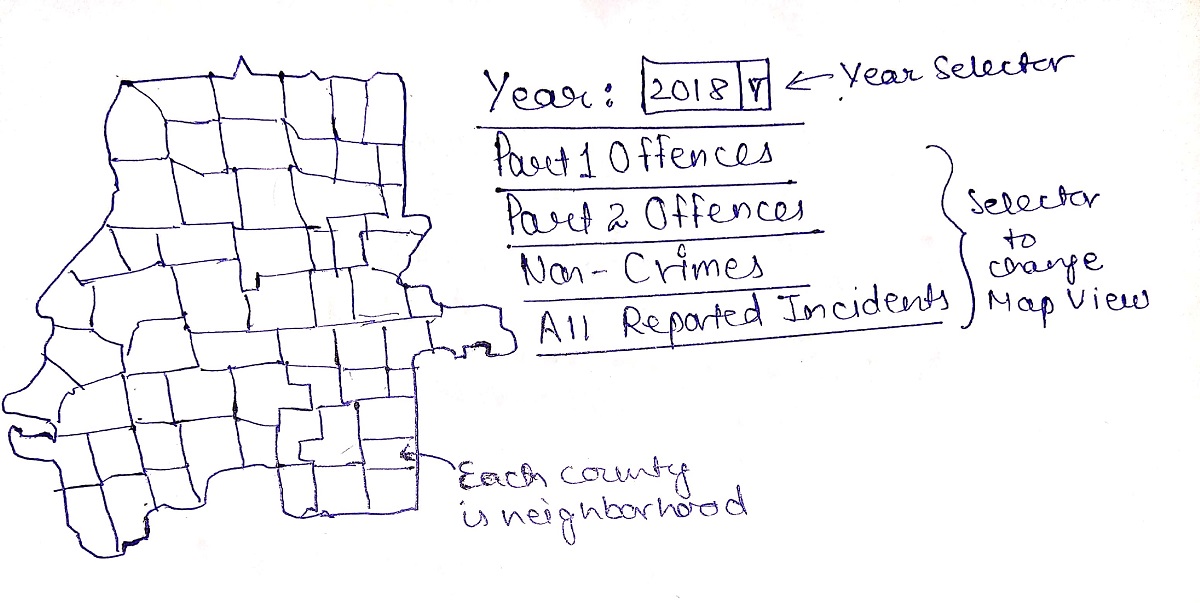 Year: 2018 ← Year Selector
Part 1 Offences
Part 2 Offences
Non-Crimes
All Reported Incidents
Selector
to
change
Map View
Each county
is neighborhood